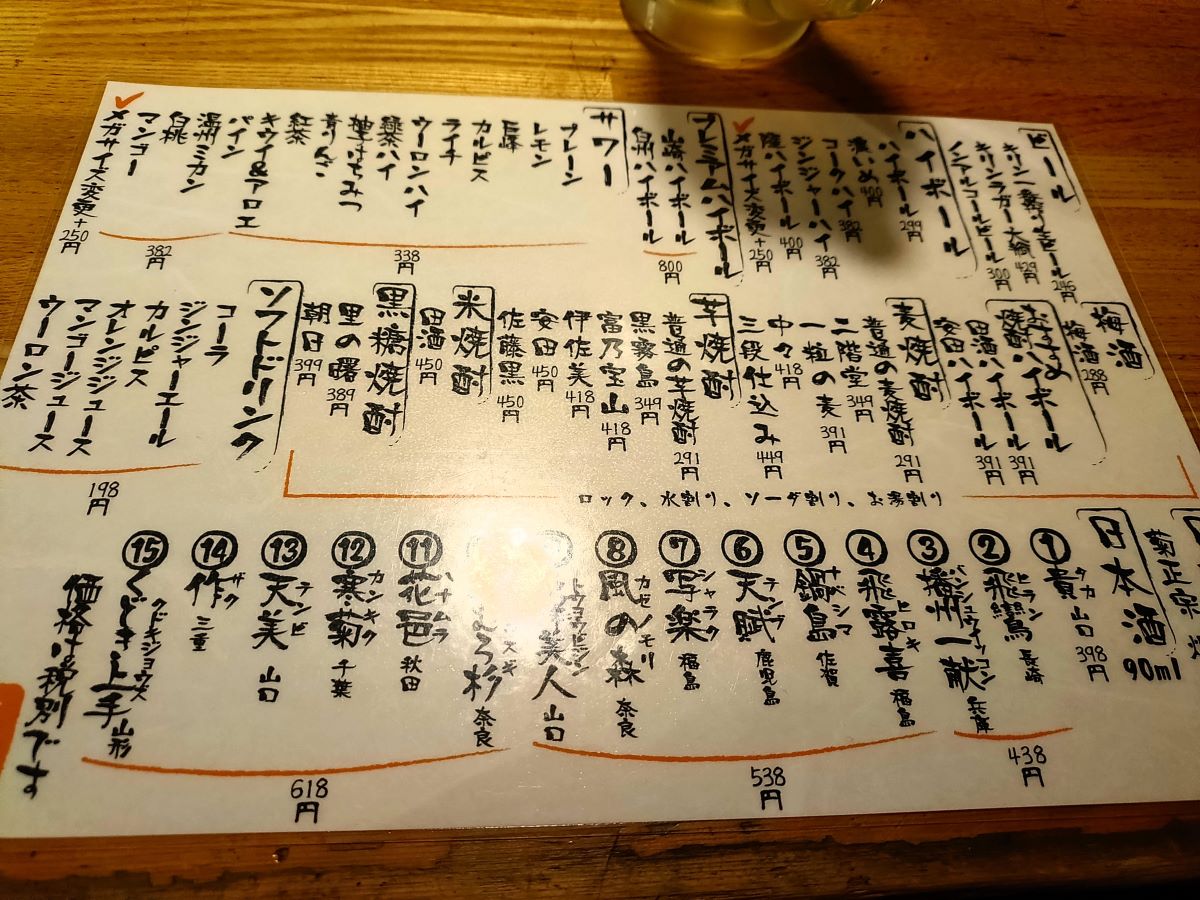 ビール
キリン一番搾り生ビール 246円
キリンラガー大瓶 429円
ノンアルコールビール 300円
ハイボール
ハイボール 299円
濃いめ 400円
コークハイ 382円
ジンジャーハイ 382円
陸ハイボール 400円
メガサイズ変更+250円
プレミアムハイボール
山崎ハイボール
白州ハイボール
800円
サワー
プレーン
レモン
巨峰
カルピス
ライチ
ウーロンハイ
緑茶ハイ
柚子はちみつ
青りんご
紅茶
キウイ&アロエ
パイン
338円
温州ミカン
白桃
マンゴー
382円
メガサイズ変更+250円
梅酒
梅酒 288円
おすすめ
焼酎ハイボール
田酒ハイボール 391円
安田ハイボール 391円
麦焼酎
普通の麦焼酎 291円
二階堂 349円
一粒の麦 391円
中々 418円
三段仕込み 449円
芋焼酎
普通の芋焼酎 291円
黒霧島 349円
富乃宝山 418円
伊佐美 418円
安田 450円
佐藤黒 450円
米焼酎
田酒 450円
黒糖焼酎
里の曙 389円
朝日 399円
ロック、水割り、ソーダ割り、お湯割り
ソフトドリンク
コーラ
ジンジャーエール
カルピス
オレンジジュース
マンゴージュース
ウーロン茶
198円
菊正宗
日本酒 90ml
①貴 タカ 山口 398円
②飛鸞 ヒラン 長崎
③播州一献 バンシュウイッコン 兵庫
438円
④飛露喜 ヒロキ 福島
⑤鍋島 ナベシマ 佐賀
⑥天賦 テンブ 鹿児島
⑦写楽 シャラク 福島
⑧風の森 カゼノモリ 奈良
美人 山口
538円
杉 スギ 奈良
⑪花邑 ハナムラ 秋田
⑫寒菊 カンキク 千葉
⑬天美 テンビ 山口
⑭作 ザク 三重
⑮くどき上手 クドキジョウズ 山形
618円
価格は税別です